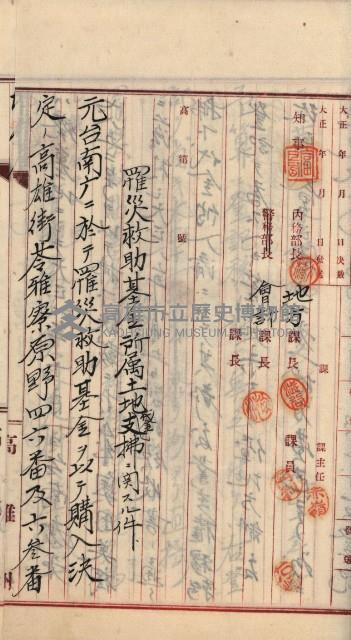 大正 年 月 日決裁
大正 年 月 日
知事
內務部長
地方課長
課員
課主任
警務部長
會計課長
高第 號
罹災救助基金所屬土地整支拂ニ關スル件
元台南廳ニ於テ罹災救助基金ヲ以テ購入決
定ノ高雄街苓雅寮原野四六番及六參番
高雄市立歷史博物館
KAOHSIUNG MUSEUM OF HISTORY
高雄州